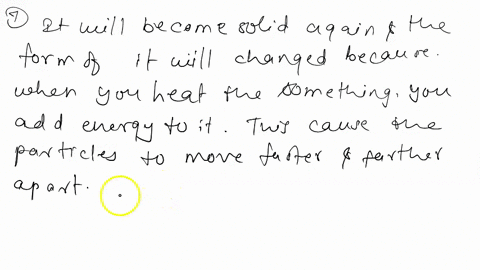 7 It will become solid again & the
form of it will changed because.
when you heat the something, you
add energy to it. This cause the
particles to move faster & farther
apart.